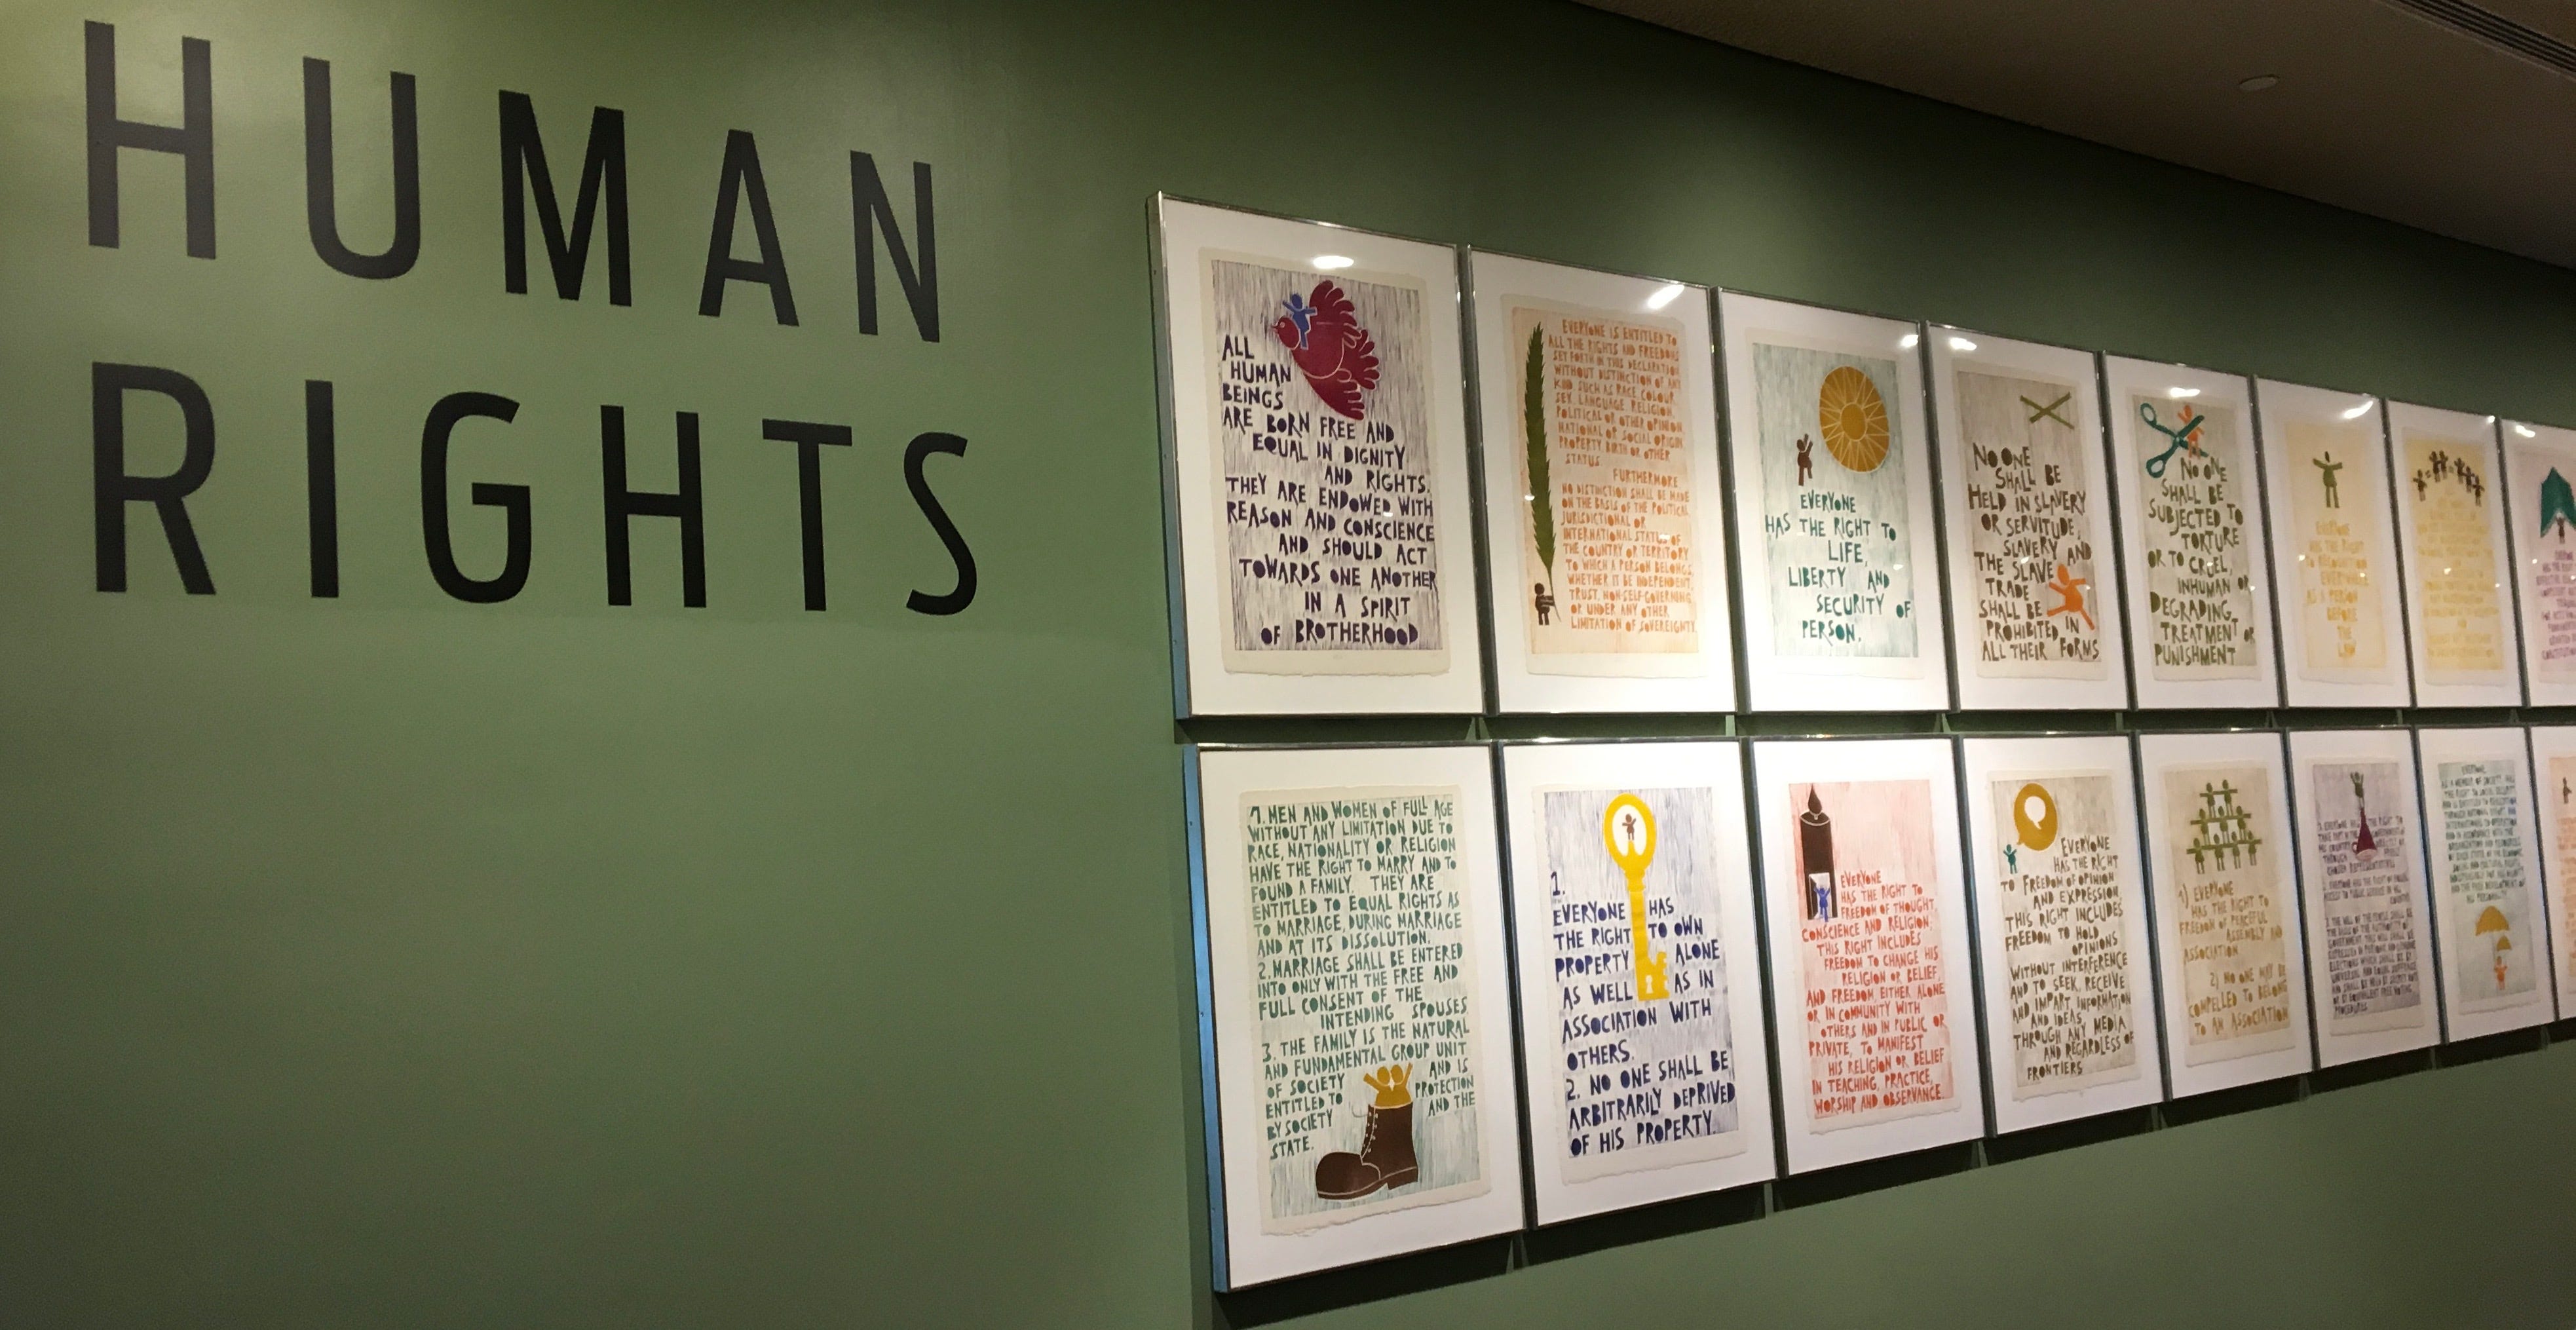 HUMAN
RIGHTS
ALL
HUMAN
BEINGS
ARE BORN FREE AND
EQUAL IN DIGNITY
AND RIGHTS.
THEY ARE ENDOWED WITH
REASON AND CONSCIENCE
AND SHOULD ACT
TOWARDS ONE ANOTHER
IN A SPIRIT
OF BROTHERHOOD
EVERYONE IS ENTITLED TO
ALL THE RIGHTS AND FREEDOMS
SET FORTH IN THIS DECLARATION
WITHOUT DISTINCTION OF ANY
KIND SUCH AS RACE COLOUR
SEX, LANGUAGE RELIGION,
POLITICAL OR OTHER OPINION
NATIONAL OR SOCIAL ORIGIN
PROPERTY BIRTH OR OTHER
STATUS
FURTHERMORE
NO DISTINCTION SHALL BE MADE
ON THE BASIS OF THE POLITICAL
JURISDICTIONAL OR
INTERNATIONAL STATUS OF
THE COUNTRY OR TERRITORY
TO WHICH A PERSON BELONGS,
WHETHER IT BE INDEPENDENT,
TRUST, NON-SELF-GOVERNING
OR UNDER ANY OTHER
LIMITATION OF SOVEREIGNTY
EVERYONE
HAS THE RIGHT TO
LIFE,
LIBERTY AND
SECURITY OF
PERSON.
NO ONE
SHALL BE
HELD IN SLAVERY
OR SERVITUDE,
SLAVERY AND
THE SLAVE
TRADE
SHALL BE
PROHIBITED IN
ALL THEIR FORMS
NO ONE
SHALL BE
SUBJECTED TO
TORTURE
OR TO CRUEL,
INHUMAN OR
DEGRADING
TREATMENT OR
PUNISHMENT
EVERYONE
HAS THE RIGHT
TO RECOGNITION
EVERYWHERE
AS A PERSON
BEFORE
THE
LAW
1. MEN AND WOMEN OF FULL AGE
WITHOUT ANY LIMITATION DUE TO
RACE, NATIONALITY OR RELIGION
HAVE THE RIGHT TO MARRY AND TO
FOUND A FAMILY. THEY ARE
ENTITLED TO EQUAL RIGHTS AS
TO MARRIAGE, DURING MARRIAGE
AND AT ITS DISSOLUTION.
2. MARRIAGE SHALL BE ENTERED
INTO ONLY WITH THE FREE AND
FULL CONSENT OF THE
INTENDING SPOUSES
3. THE FAMILY IS THE NATURAL
AND FUNDAMENTAL GROUP UNIT
OF SOCIETY AND IS
ENTITLED TO PROTECTION
BY SOCIETY AND THE
STATE.
1.
EVERYONE HAS
THE RIGHT TO OWN
PROPERTY ALONE
AS WELL AS IN
ASSOCIATION WITH
OTHERS.
2. NO ONE SHALL BE
ARBITRARILY DEPRIVED
OF HIS PROPERTY.
EVERYONE
HAS THE RIGHT TO
FREEDOM OF THOUGHT,
CONSCIENCE AND RELIGION;
THIS RIGHT INCLUDES
FREEDOM TO CHANGE HIS
RELIGION OR BELIEF,
AND FREEDOM, EITHER ALONE
OR IN COMMUNITY WITH
OTHERS AND IN PUBLIC OR
PRIVATE, TO MANIFEST
HIS RELIGION OR BELIEF
IN TEACHING, PRACTICE,
WORSHIP AND OBSERVANCE.
EVERYONE
HAS THE RIGHT
TO FREEDOM OF OPINION
AND EXPRESSION
THIS RIGHT INCLUDES
FREEDOM TO HOLD
OPINIONS
WITHOUT INTERFERENCE
AND TO SEEK, RECEIVE
AND IMPART INFORMATION
AND IDEAS
THROUGH ANY MEDIA
AND REGARDLESS OF
FRONTIERS
1) EVERYONE
HAS THE RIGHT TO
FREEDOM OF PEACEFUL
ASSEMBLY AND
ASSOCIATION
2) NO ONE MAY BE
COMPELLED TO BELONG
TO AN ASSOCIATION